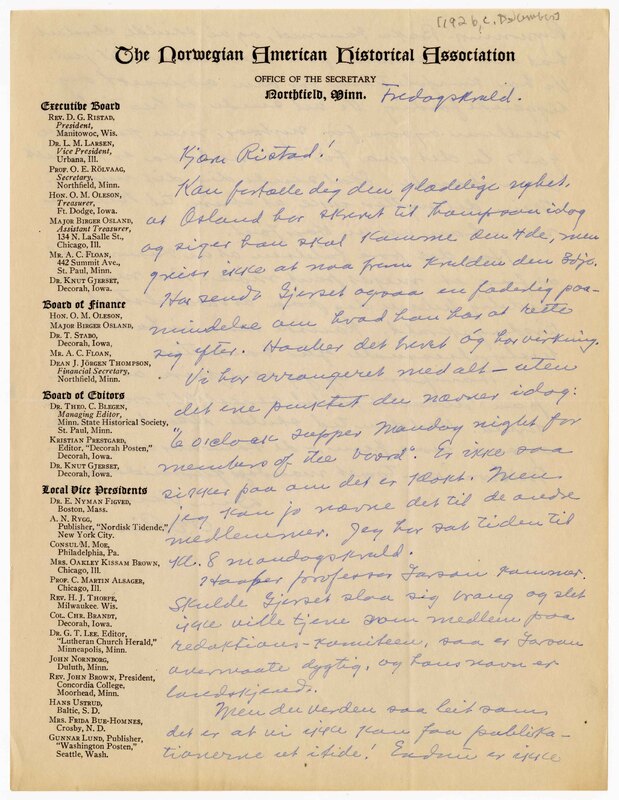 [1926, c. December]
The Norwegian American Historical Association
OFFICE OF THE SECRETARY
Northfield, Minn.
Fredagskveld.
Executive Board
REV. D. G. RISTAD,
President,
Manitowoc, Wis.
DR. L. M. LARSEN,
Vice President,
Urbana, Ill.
PROF. O. E. RÖLVAAG,
Secretary,
Northfield, Minn.
HON. O. M. OLESON,
Treasurer,
Ft. Dodge, Iowa.
MAJOR BIRGER OSLAND,
Assistant Treasurer,
134 N. LaSalle St.,
Chicago, Ill.
MR. A. C. FLOAN,
442 Summit Ave.,
St. Paul, Minn.
DR. KNUT GJERSET,
Decorah, Iowa.
Board of Finance
HON. O. M. OLESON,
MAJOR BIRGER OSLAND,
DR. T. STABO,
Decorah, Iowa.
MR. A. C. FLOAN,
DEAN J. JÖRGEN THOMPSON,
Financial Secretary,
Northfield, Minn.
Board of Editors
DR. THEO. C. BLEGEN,
Managing Editor,
Minn. State Historical Society,
St. Paul, Minn.
KRISTIAN PRESTGARD,
Editor, "Decorah Posten,"
Decorah, Iowa.
DR. KNUT GJERSET,
Decorah, Iowa.
Local Vice Presidents
DR. E. NYMAN FIGVED,
Boston, Mass.
A. N. RYGG,
Publisher, "Nordisk Tidende,"
New York City.
CONSUL M. MOE,
Philadelphia, Pa.
MRS. OAKLEY KISSAM BROWN,
Chicago, Ill.
PROF. C. MARTIN ALSAGER,
Chicago, Ill.
REV. H. J. THORPE,
Milwaukee. Wis.
COL. CHR. BRANDT,
Decorah, Iowa.
DR. G. T. LEE, Editor,
"Lutheran Church Herald,"
Minneapolis, Minn.
JOHN NORNBORG,
Duluth, Minn.
REV. JOHN BROWN, President,
Concordia College,
Moorhead, Minn.
HANS USTRUD,
Baltic, S. D.
MRS. FRIDA BUE-HOMNES,
Crosby, N. D.
GUNNAR LUND, Publisher,
"Washington Posten,"
Seattle, Wash.
Kjære Ristad!
Kan fortælle dig den glædelige nyhet,
at Osland har skrevet til Thompson idag
og siger han skal komme den 4de, men
greier ikke at naa frem kvelden den 3dje.
Har sendt Gjerset ogsaa en faderlig paa-
mindelse om hvad han har at rette
sig efter. Haaber det brevet óg har virkning.
Vi har arrangeret med alt — uten
det ene punktet du nævner idag:
"6 o'cloak supper Manday night for
members of the board". Er ikke saa
sikker paa om det er klokt. Men
jeg kan jo nævne det til de andre
medlemmer. Jeg har sat tiden til
Kl. 8 mandagskveld.
Haaper professor Larson kommer.
Skulde Gjerset slaa sig vrang og slet
ikke ville tjene som medlem paa
redaktions-komiteen, saa er Larson
overmaate dygtig, og hans navn er
landskjendt.
Men du verden saa leit som
det er at vi ikke kan faa publika-
tionerne ut itide! Endnu er ikke